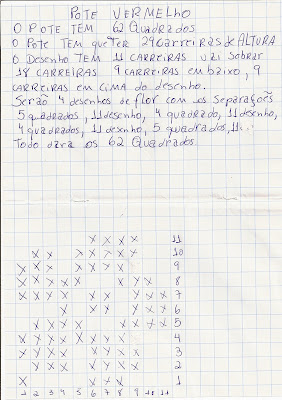 POTE VERMELHO
O POTE TEM 62 Quadrados
O POTE TEM que TER 29 Carreiras de ALTURA
O Desenho TEM 11 CARREIRAS vai Sobrar
18 CARREIRAS 9 CARREIRAS em baixo, 9
CARREIRAS em CIMA do desenho.
Serão 4 desenhos de flor com as Separações
5 quadrados, 11 desenho, 4 quadrado, 11 desenho,
4 quadrados, 11 desenho, 5 quadrados, 11...
Todo dara os 62 Quadrados.
X X X X 11
X X X X X X X 10
X X X X X X X 9
X X X X X X X X 8
X X X X X X X X X 7
X X X X X X 6
X X X X X X X X 5
X X X X X X X X 4
X X X X X X X X 3
X X X X X X 2
X X X X 1
1 2 3 4 5 6 7 8 9 10 11